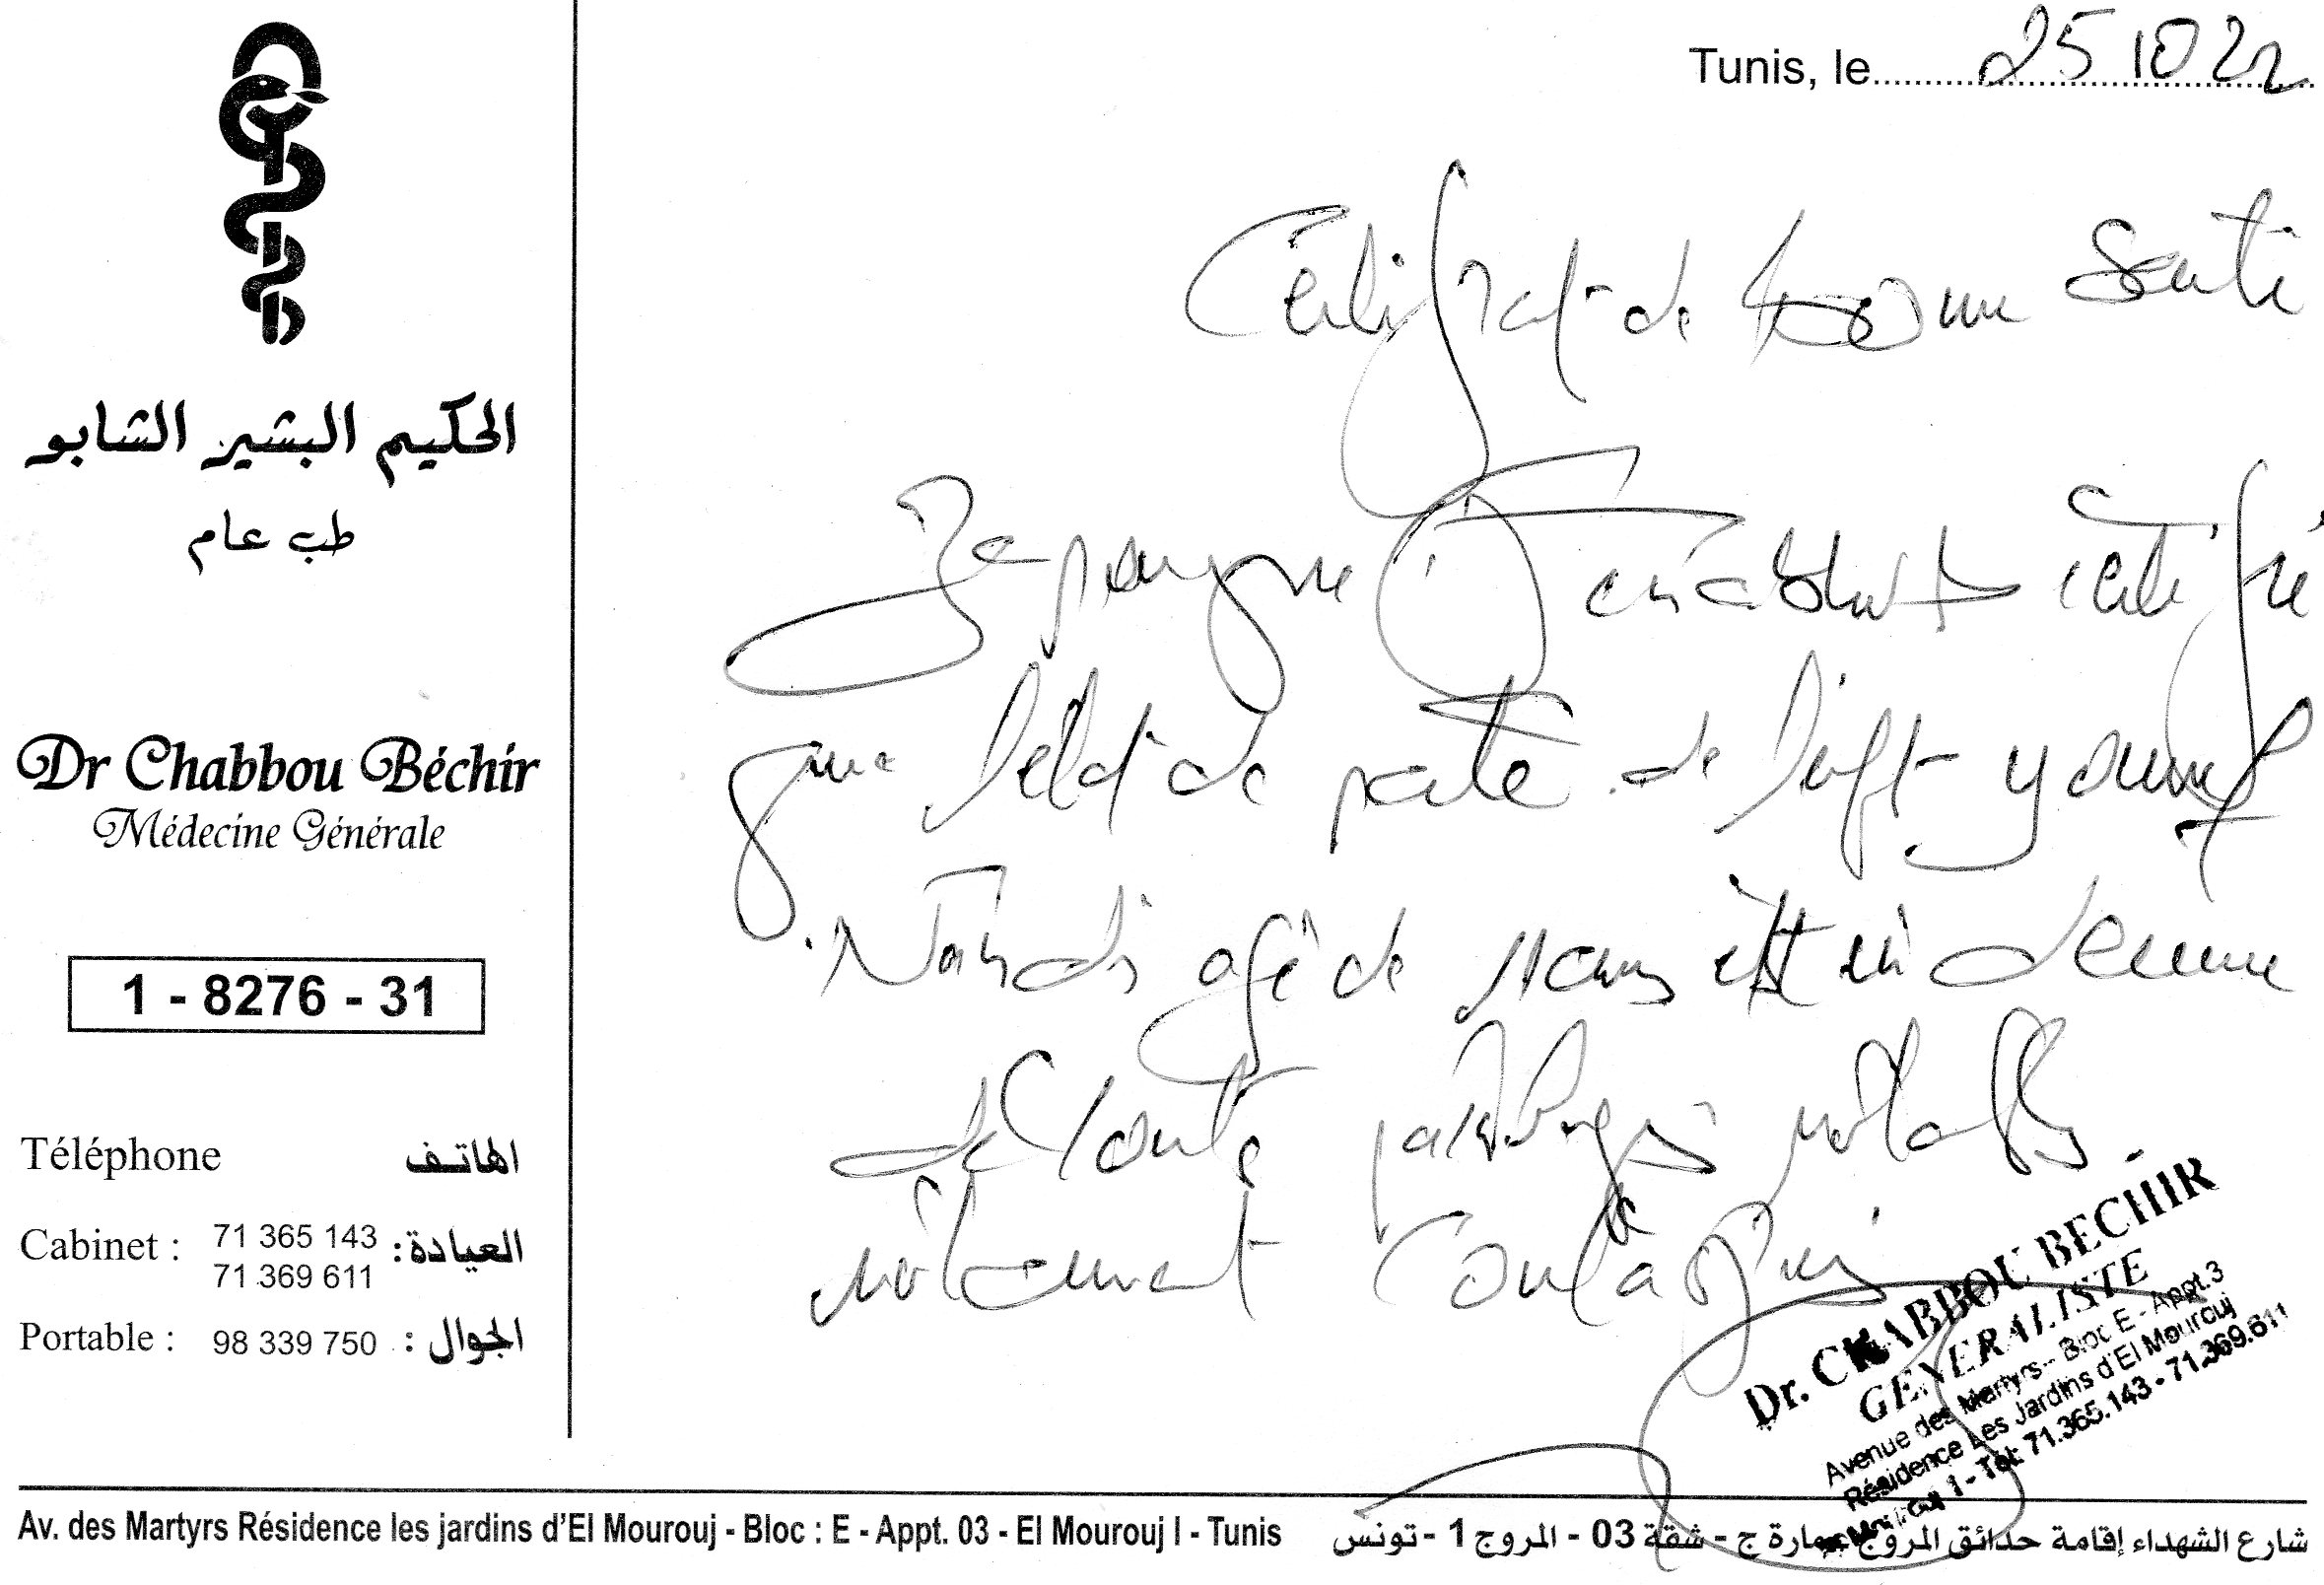 Tunis, le 25 10 22
الحكيم البشير الشابو
طب عام
Dr Chabbou Béchir
Médecine Générale
1 - 8276 - 31
Téléphone الهاتف
Cabinet : 71 365 143 العيادة:
71 369 611
Portable : 98 339 750 الجوال :
Certificat de bonne Santé
Je soussigné certifie
que l'état de santé de l'enft
âgé de 11 ans est indemne
de toute pathologie
notamment contagieuse
Dr. CHABBOU BECHIR
GENERALISTE
Avenue des Martyrs - Bloc E - Appt.3
Résidence Les Jardins d'El Mourouj
1 - Tél: 71.365.143 - 71.369.611
Av. des Martyrs Résidence les jardins d'El Mourouj - Bloc : E - Appt. 03 - El Mourouj I - Tunis
شارع الشهداء إقامة حدائق المروج عمارة ج - شقة 03 - المروج 1 - تونس